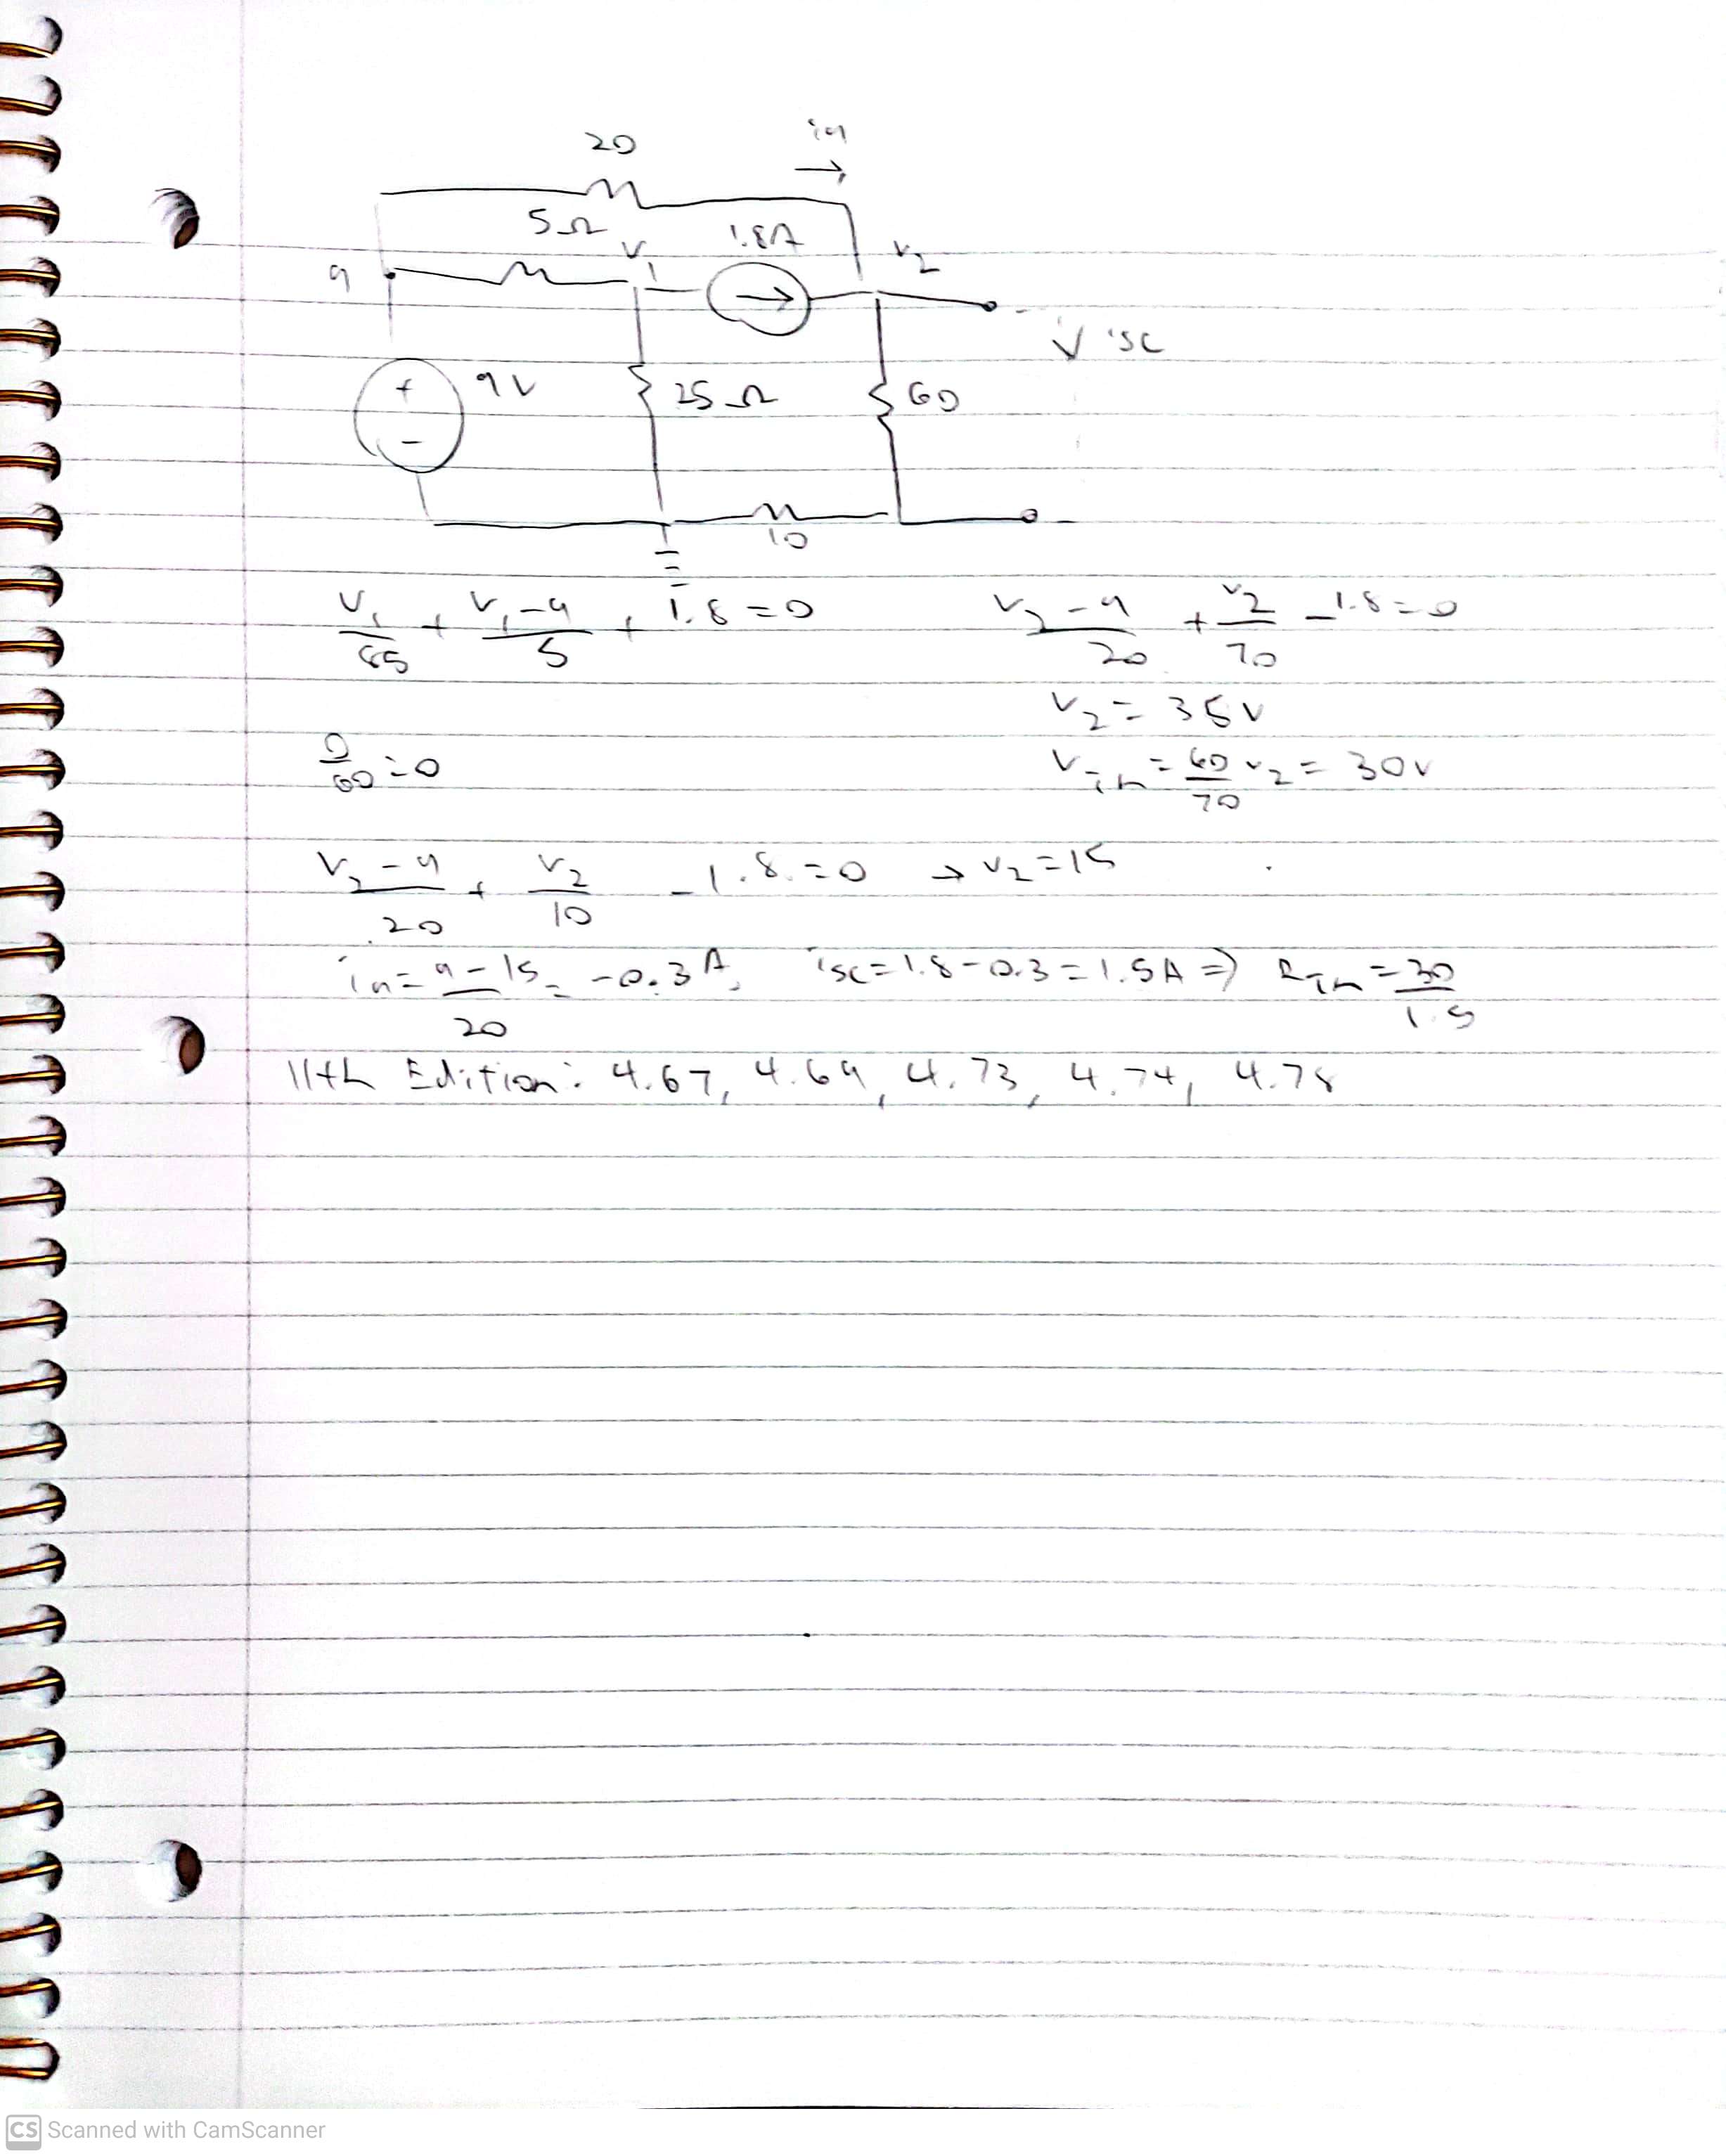 20 ia
5Ω V1 1.8A V2
9
isc
+ 9V 25Ω 60
-
10
V1/25 + (V1-9)/5 + 1.8 = 0 (V2-9)/20 + V2/70 - 1.8 = 0
V2 = 35V
0/60 = 0 VTh = 60/70 V2 = 30V
(V2-9)/20 + V2/10 - 1.8 = 0 → V2 = 15
ia = (9-15)/20 = -0.3A, isc = 1.8-0.3 = 1.5A ⇒ RTh = 30/1.5
11th Edition: 4.67, 4.69, 4.73, 4.74, 4.78
CS Scanned with CamScanner